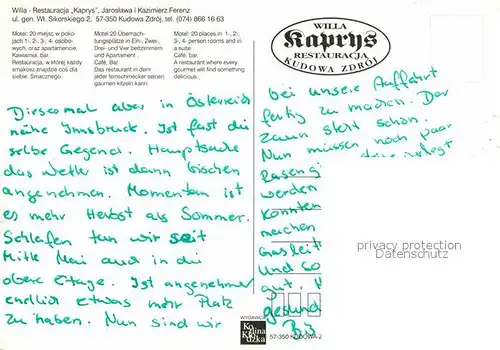 Willa - Restauracja „Kaprys", Jarosława i Kazimierz Ferenz
ul. gen. Wł. Sikorskiego 2, 57-350 Kudowa Zdrój, tel. (074) 866 16 63
Motel: 20 miejsc w poko-
jach 1-, 2-, 3-, 4- osobo-
wych, oraz apartamencie.
Kawiarnia, bar.
Restauracja, w której każdy
smakosz znajdzie coś dla
siebie. Smacznego.
Motel:20 Übernach-
tungsplätze in Ein-, Zwei-,
Drei- und Vier beitzimmern
und Apartament.
Café, Bar.
Das restaurant in dem
jeder feinschmecker seinen
gaumen kitzeln kann.
Motel: 20 places in 1-, 2-,
3-, 4- person rooms and in
a suite.
Café, bar.
A restaurant where every
gourmet will find something
delicious.
WILLA
Kaprys
RESTAURACJA
KUDOWA ZDRÓJ
Diesesmal aber in Österreich
nähe Innsbruck. Ist fast die
selbe Gegend. Hauptsache
das Wetter ist dann bischen
angenehmer. Momentan ist
es mehr Herbst als Sommer.
Schlafen tun wir seit
Mitte Mai auch in die
obere Etage. Ist angenehmer
endlich etwas mehr Platz
zu haben. Nun sind wir
bei unsere Auffahrt
fertig zu machen. Der
Zaun steht schon.
Nun müssen noch paar
Raseng
werden
konnten
machen
Gasleit
und so
gut. H
gesund
Bis
privacy protection
delcampe.net
WYDAWCA
Kotlina Kłodzka
57-350 KUDOWA-Z